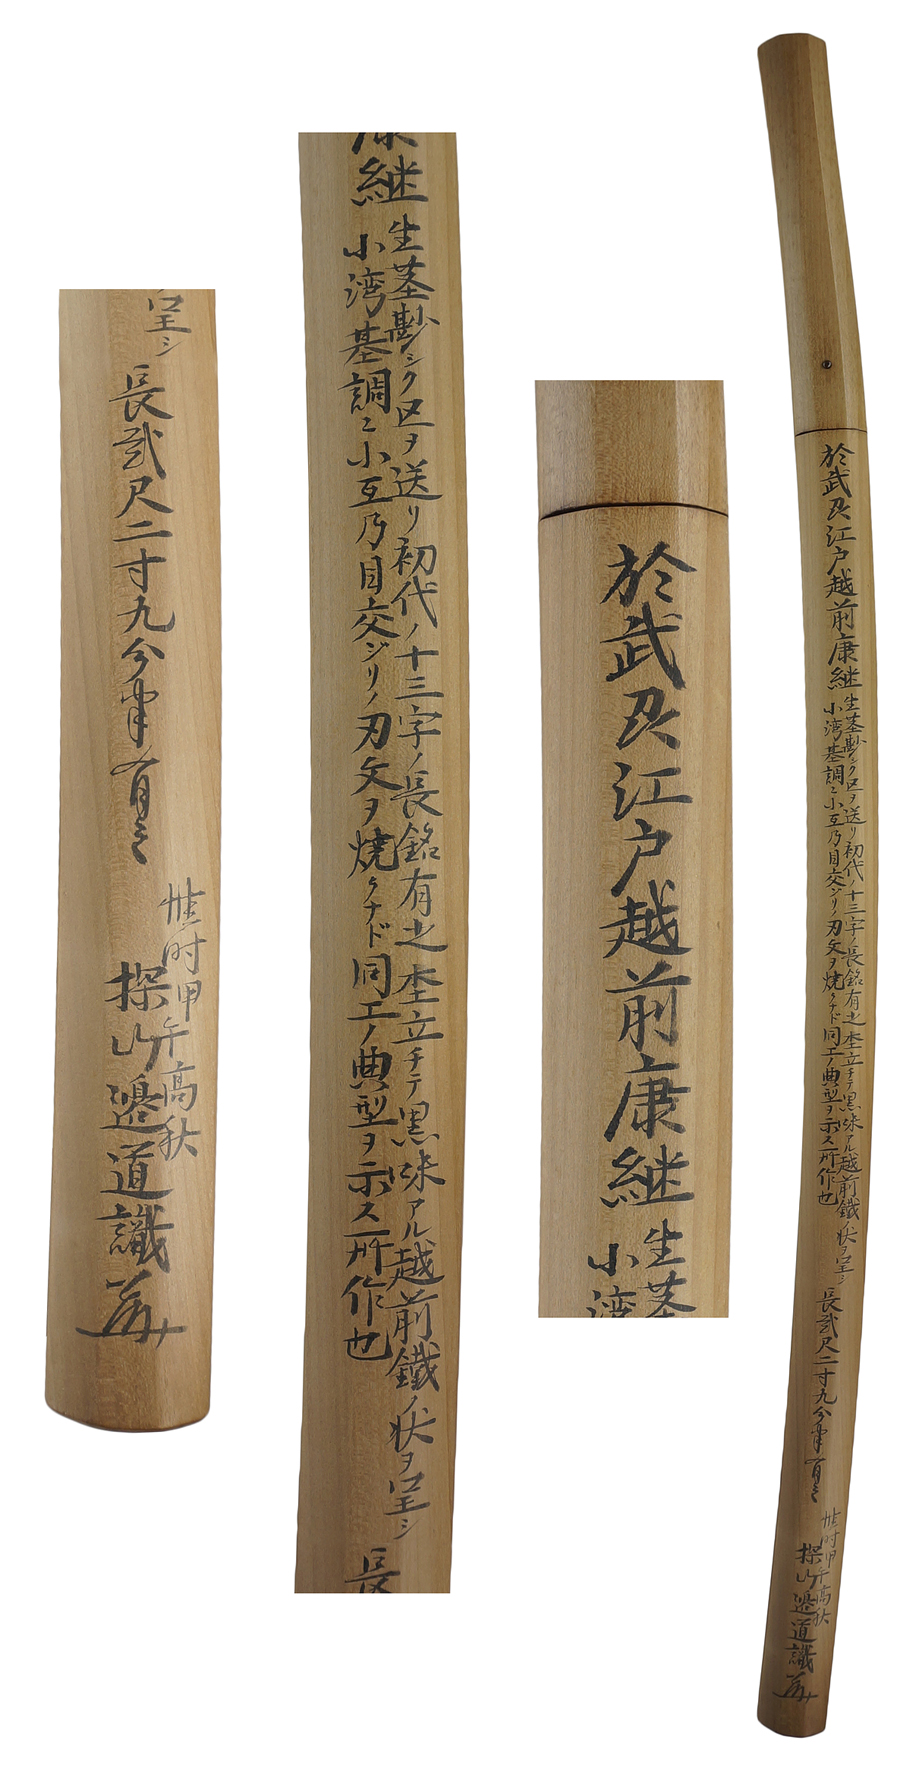 於武刕江戸越前康継
生茎尠シク区ヲ送リ初代ノ十三字ノ長銘有之杢立チテ黒味アル越前鐵ノ状ヲ呈シ
小湾基調ニ小互乃目交ジリノ刃文ヲ焼クナド同工ノ典型ヲ示ス一所作也
長弐尺二寸九分半有之
惟時甲午高秋
探山邉道識